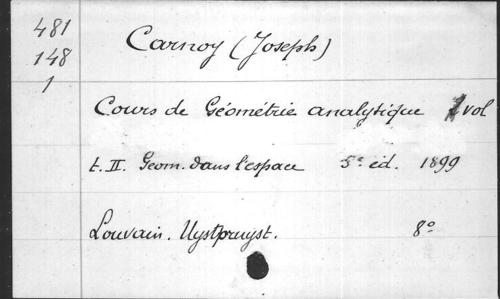 481
148
1
Carnoy (Joseph)
Cours de Géométrie analytique 1 vol
t. II. Geom. dans l'espace 5e éd. 1899
Louvain. Uystpruyst. 8°